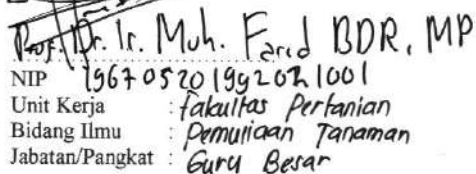 Prof. Dr. Ir. Muh. Farid BDR, MP
NIP 196705201992021001
Unit Kerja : fakultas Pertanian
Bidang Ilmu : Pemuliaan Tanaman
Jabatan/Pangkat : Guru Besar